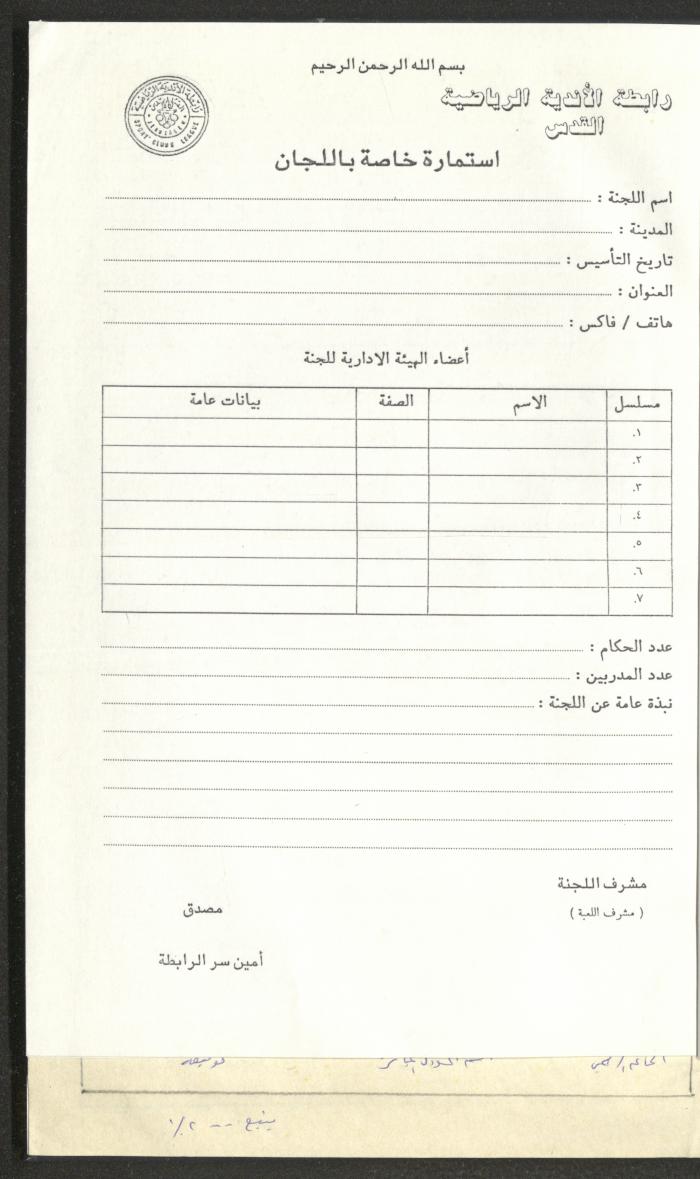 بسم الله الرحمن الرحيم
رابطة الأندية الرياضية
القدس
رابطة الأندية الرياضية
القدس
JERUSALEM
SPORT CLUBS LEAGUE
استمارة خاصة باللجان
اسم اللجنة :
المدينة :
تاريخ التأسيس :
العنوان :
هاتف / فاكس :
أعضاء الهيئة الادارية للجنة
مسلسل الاسم الصفة بيانات عامة
١.
٢.
٣.
٤.
٥.
٦.
٧.
عدد الحكام :
عدد المدربين :
نبذة عامة عن اللجنة :
مشرف اللجنة
( مشرف اللعبة )
مصدق
أمين سر الرابطة
يتبع